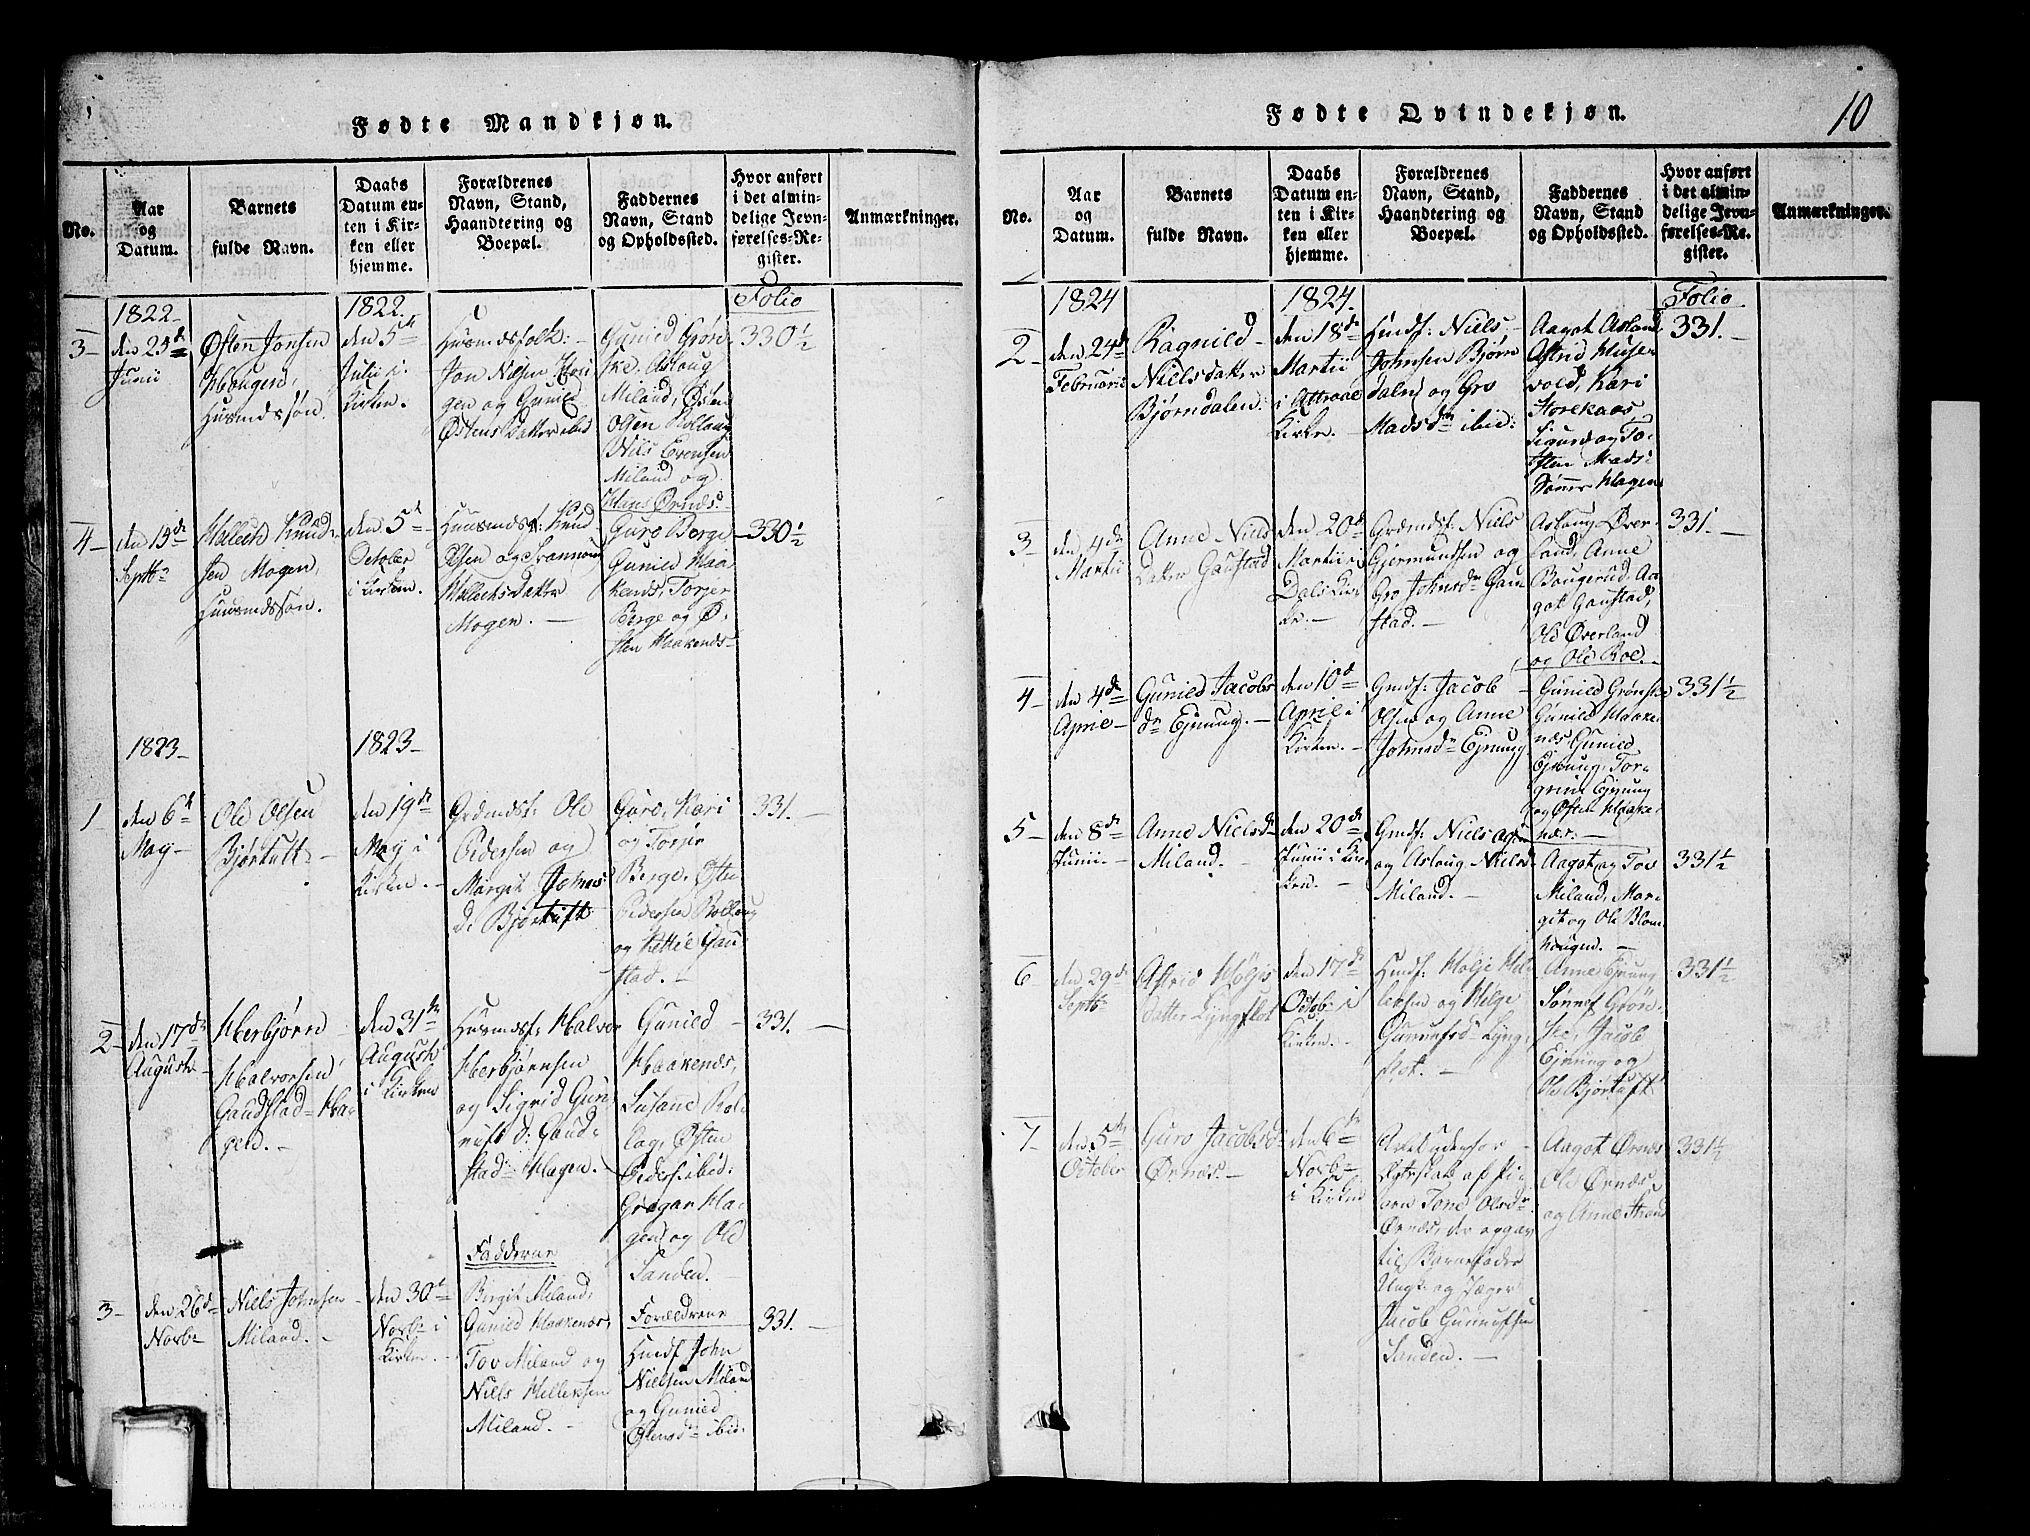 Fødte Mandkjøn.
No.
Aar
og
Datum.
Barnets
fulde Navn.
Daabs
Datum en-
ten i Kir-
ken eller
hjemme.
Forældrenes
Navn, Stand,
Haandtering og
Boepæl.
Faddernes
Navn, Stand
og Opholdssted.
Hvor anført
i det almin-
delige Jevn-
førelses-Re-
gister.
Anmærkninger.
Folio
1822
1822.
3
den 25de
Junii
Østen Jonsen
Haugen,
Huusmdssøn.
den 5te
Julii i
Kirken.
Huusmdsfolk:
Jon Nilsen Hou
gen og Gunild
Østens Datter ibid
Gunild Grøns
Asloug
Miland, Østen
Olsen Rollaug
Nils Evensen
Miland og
Hans Ørnæs.
330½
4
den 15de
Septbr
Mollech Knud-
sen Mogen,
Huusmdssøn.
den 5te
October
i Kirken.
Huusmdsf: Knud
Olsen og Grannoug
Mollechsdatter
Mogen.
Guro Berge
Gunild Haa
kenæs, Torjer
Berge og Ø-
sten Haakenæs
330½
1823
1823
1
den 6te
May
Ole Olsen
Bjørtuft
den 19de
May i
Kirken.
Grdmdsf: Ole
Pedersen og
Margit Johnsd
d: Bjørtuft
Guro, Kari
og Torjer
Berge, Østen
Pedersen Rollaug
og Kettil Gau
stad.
331.
2
den 17de
Augusti
Herbjørn
Halvorsen
Gaudstad-Ha-
gen.
den 31te
August
i Kirken
Huusmdsf: Halvor
Herbjørnsen
og Sigrid Gun
nulfsd: Gaud-
stad-Hagen.
Gunild
Haakenæs,
Susanne Rol
lag, Østen
Peders: ibid:
Gregar Ha-
gen og Ole
Sanden.
331.
3
den 26de
Novbr
Niels Johnsen
Miland.
den 30te
Novbr i
Kirken.
Fadderne
Birgit Miland,
Gunild Haakenæs,
Tov Miland og
Niels Helleksen
Miland.
Forældrene
Husmdf John
Nielsen Miland
og Gunild
Olensdr ibid:
331.
Fødte Qvindekjøn.
10
No.
Aar
og
Datum.
Barnets
fulde Navn.
Daabs
Datum en-
ten i Kir-
ken eller
hjemme.
Forældrenes
Navn, Stand,
Haandtering og
Boepæl.
Faddernes
Navn, Stand
og Opholdssted.
Hvor anført
i det almin-
delige Jevn-
førelses-Re-
gister.
Anmærkninger.
Folio
1824
1824.
2
den 24de
Februarii
Ragnild
Nielsdatter
Bjørndalen.
den 18de
Martii
i Attraae
Kirke.
Husmdf: Niels
Johnsen Bjørn
dalen og Gro
Madsdr ibid:
Aagot Asland
Astrid Huse-
vold, Kari
Storekaas,
Sigurd og To-
sten Mads-
Sønner Hagen
331.
3
den 4de
Martii
Anne Niels
Datter Gaustad
den 20de
Martii i
Dals Kir-
ke.
Grdmdsf: Niels
Gjermundsen og
Gro Johnsdr Gau
stad.
Aslaug Øver-
land, Anne
Bougerud, Aa-
got Gaustad,
Ole Øverland
og Ole Boe.
331.
4
den 4de
April
Gunild Jacobs
dr Ejnung.
den 10de
April i
Kirken.
Gmdf: Jacob
Olsen og Anne
Johnsdr Ejnung
Gunild Grønskei
Gunild Haake-
næs Gunild
Ejnung, Tor-
grim Ejnung
og Østen Haake-
næs.
331½
5
den 8de
Junii.
Anne Nielsdr
Miland.
den 20de
Junii i Kir
ken.
Gmdf: Niels Olsen
og Aslaug Nielsd
Miland.
Aagot og Tov
Miland, Mar-
git og Ole Blom
hougen.
331½
6
den 29de
Septbr
Astrid Høljes
datter Lyngflot
den 17de
Octob: i
Kirken.
Husmdf: Holje Hel
leksen og Helge
Gunnulfsdr Lyng-
flot.
Anne Ejnung
Sønnef Grøn-
skei, Jacob
Ejnung og
Ole Bjørtuft
331½
7
den 5te
October
Guro Jacobsd
Ørnæs.
den 6te
Novbr
i Kirken
Avlet udenfor
Egteskab af Pi-
gen Tone Olsdr
Ørnæs, der opgav
til Barnefader
Ungk. og Jæger
Jacob Gunnulfsen
Sanden.
Aagot Ørnæs
Ole Ørnæs
og Anne Strand
331½